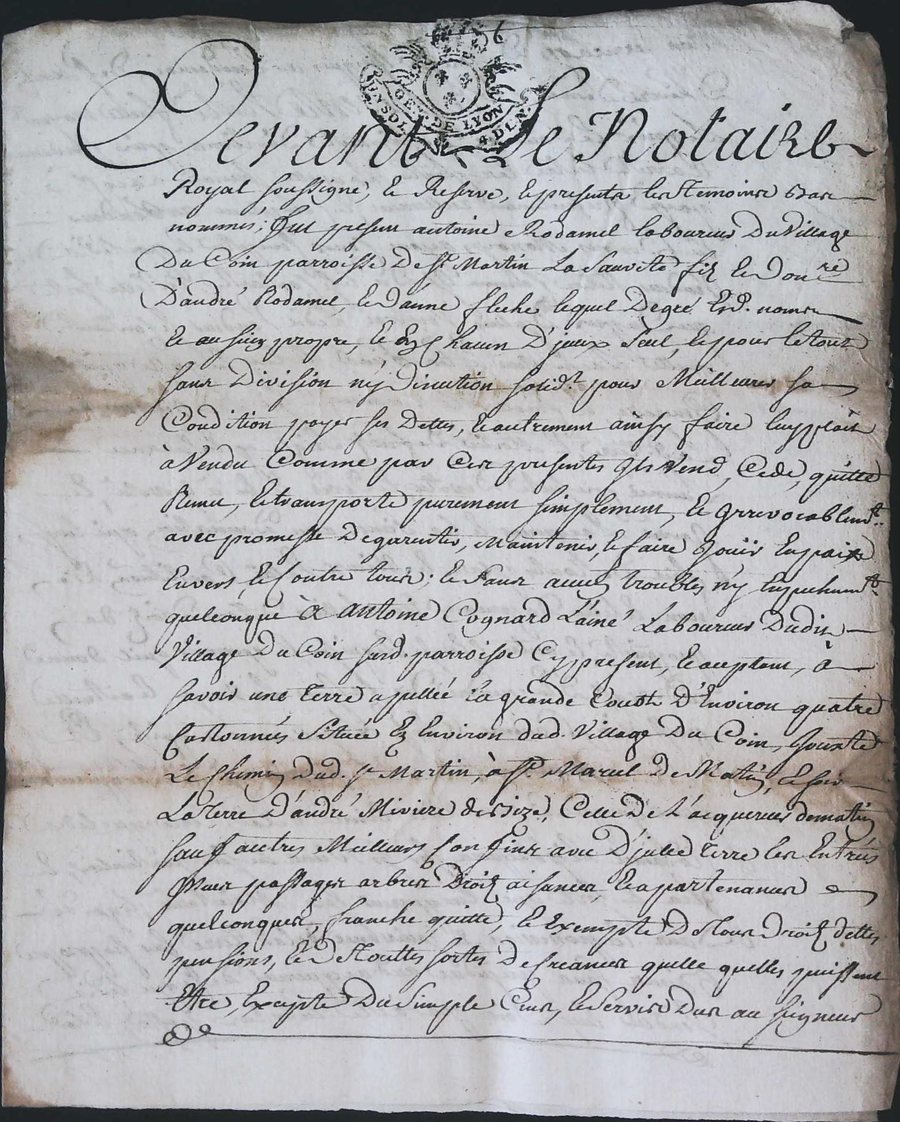 6
GEN. DE LYON
UN SOL 4 D. L. N.
Devant Le Notaire
Royal soussigné, et Reservé, et presents les temoins bas
nommés; fut present antoine Rodamel laboureur Du Village
Du Coin parroisse De St. Martin La Sauveté fils et don.re
D'andré Rodamel, et d'anne fleche lequel De gré Esd. noms
et au sien propre, et En Chacun D'jceux seul, et pour le tout
sans Division n'y Discution solid.t pour Meilleures sa
Condition payer ses Dettes, et autrement ainsy faire luy plait
à Vendu Comme par Ces presentes jls Vend, Cede, quitte
Remet, et transporte purement simplement, et jrrevocablem.t
avec promesse De garentir, Maintenir, et faire Jouïr En paix
Envers, et Contre tous; et sans aucuns troubles n'y Empechem.t
quelconque à antoine Cognard L'ainé Laboureur Dudit
Village Du Coin susd. parroisse Cy present, et aceptant, à
savoir une terre apellée la grande D'Environ quatre
Cartonnées Située Es Environ dud. Village Du Coin, Jouxte
Le Chemin dud. St. Martin, à St. Marcel De Matin, et soir
La terre D'andré Miviere de bize, Celle De L'acquereur de matin
sauf autres Meilleurs Confins avec D'jcelle terre les Entrées
passages arbres Droits aisances, et apartenances
quelconques, franche quitte, et Exempte De tous Droits dettes
pensions, et De touttes sortes De Creances quelle quelles puissent
Etre, Excepté Du Simple Cens, et Servis Dus au Seigneur
De